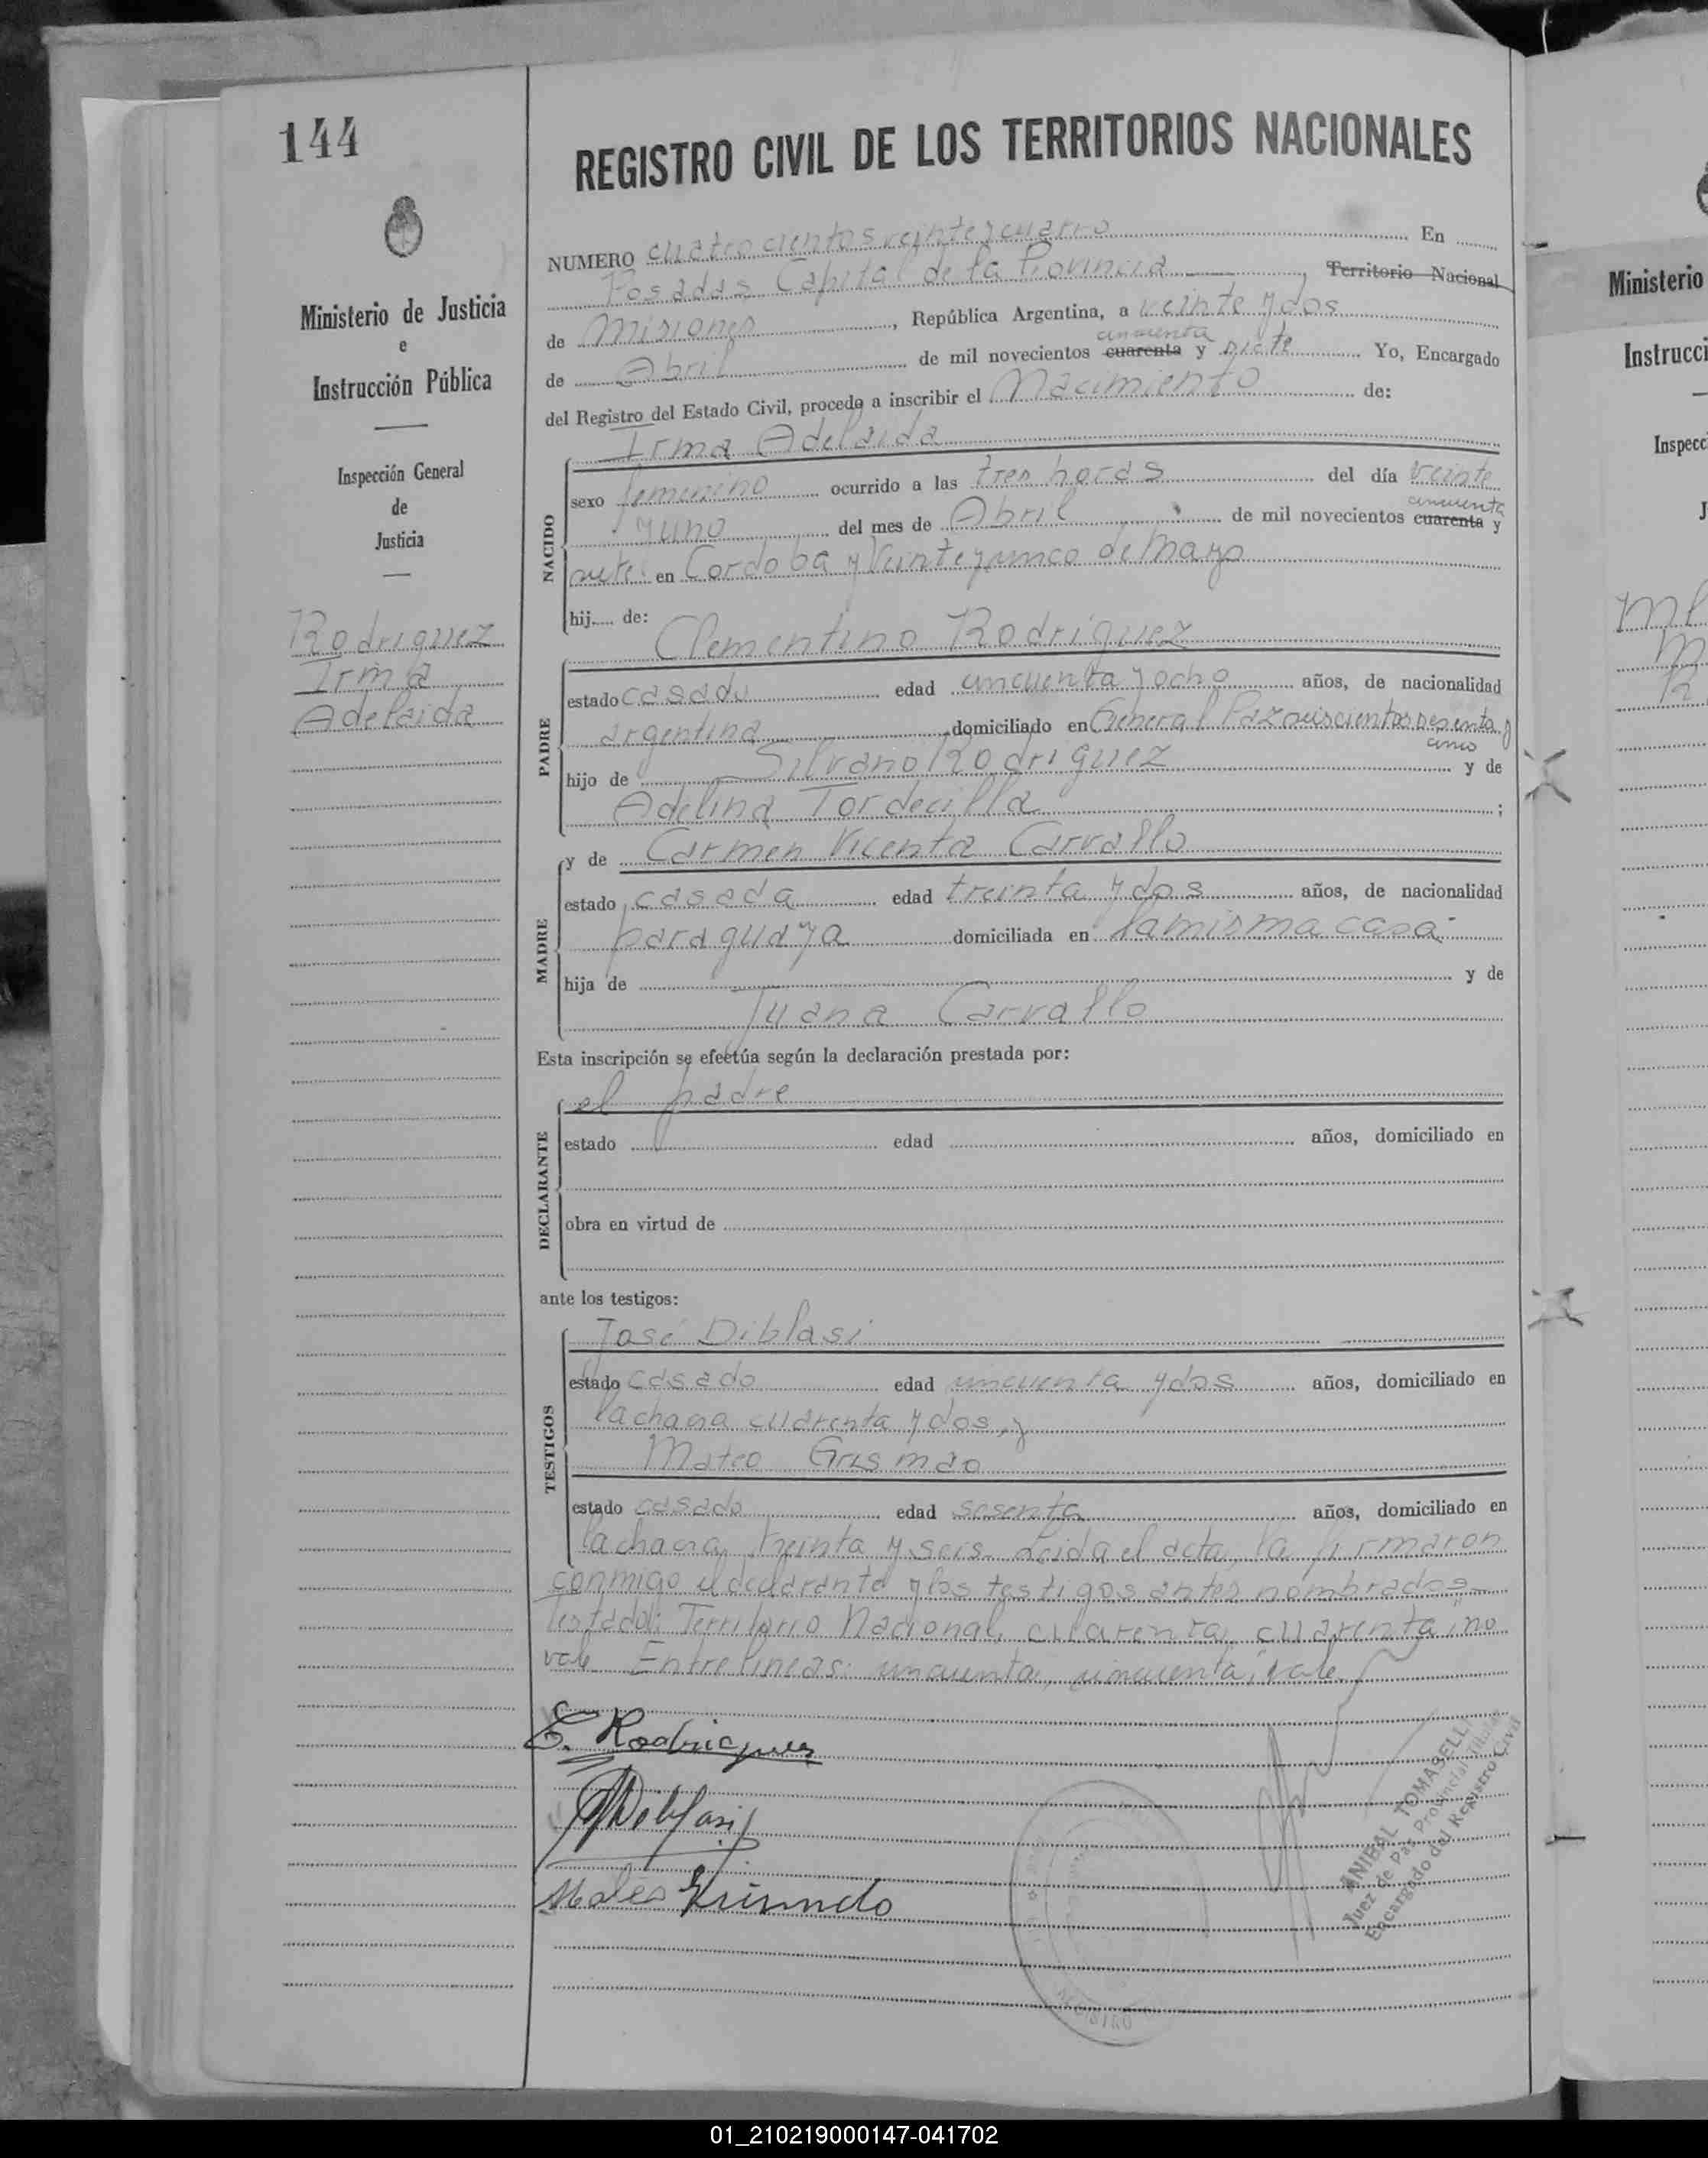 144
REGISTRO CIVIL DE LOS TERRITORIOS NACIONALES
Ministerio de Justicia
e
Instrucción Pública
Inspección General
de
Justicia
Rodriguez
Irma
Adelaida
NUMERO cuatrocientos veinte y cuatro En
Posadas Capital de la Provincia, Territorio Nacional
de Misiones, República Argentina, a veinte y dos
cincuenta
de Abril de mil novecientos cuarenta y siete Yo, Encargado
del Registro del Estado Civil, procedo a inscribir el Nacimiento de:
Irma Adelaida
NACIDO
sexo femenino ocurrido a las tres horas del día veinte
cincuenta
y uno del mes de Abril de mil novecientos cuarenta y
siete en Cordoba y Veinte y cinco de Mayo
hij de:
Clementino Rodriguez
PADRE
estado casado edad cincuenta y ocho años, de nacionalidad
argentina domiciliado en General Paz seiscientos sesenta y
cinco
hijo de Silvano Rodriguez y de
Adelina Tordecilla ;
MADRE
y de Carmen Vicenta Carvallo
estado casada edad treinta y dos años, de nacionalidad
paraguaya domiciliada en la misma casa
hija de y de
Juana Carvallo
Esta inscripción se efectúa según la declaración prestada por:
DECLARANTE
el padre
estado edad años, domiciliado en
obra en virtud de
ante los testigos:
TESTIGOS
José Diblasi
estado casado edad cincuenta y dos años, domiciliado en
la chacra cuarenta y dos, y
Mateo Grismao
estado casado edad sesenta años, domiciliado en
la chacra treinta y seis. Leida el acta, la firmaron
conmigo el declarante y los testigos antes nombrados
Testado: Territorio Nacional, cuarenta, cuarenta; no
vale Entrelineas: cincuenta, cincuenta; vale.
C. Rodriguez
Diblasi
Mateo
ANIBAL TOMASELLI
Juez de Paz Provincial Titular
Encargado del Registro Civil
REGISTRO
Ministerio
Instrucci
Inspecc
J
01_210219000147-041702